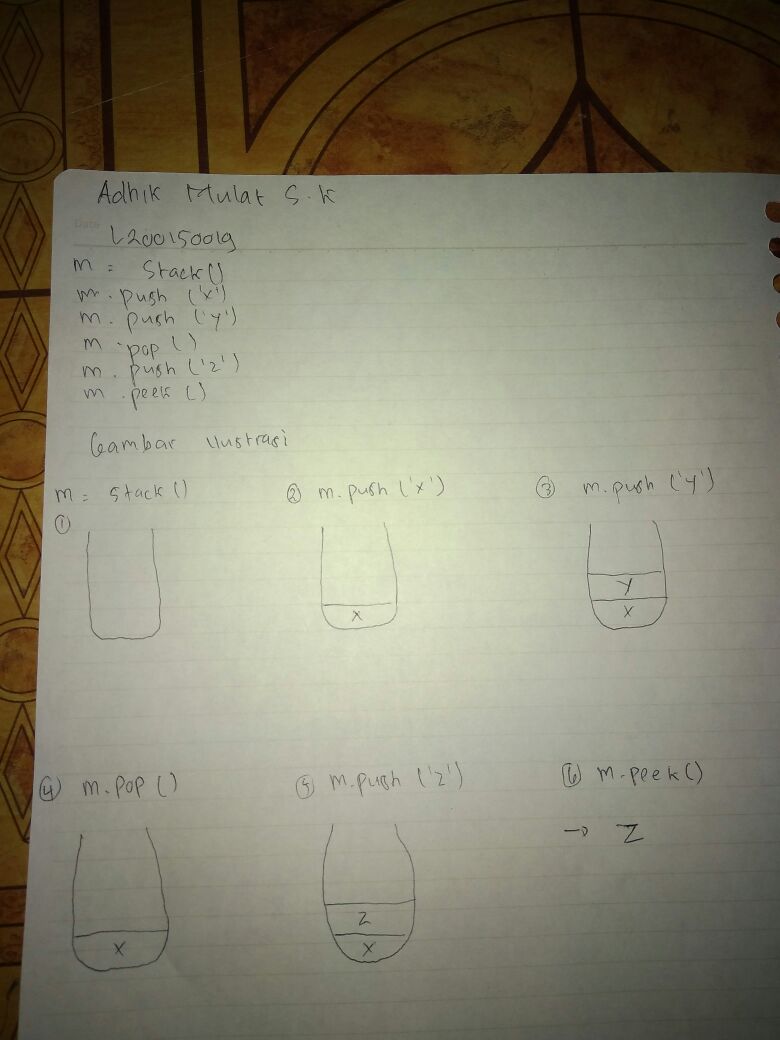 Adhik Mulat S.K
Date
L200150019
m = Stack()
m.push ('x')
m. push ('y')
m .pop ()
m. push ('z')
m .peek ()
Gambar Ilustrasi
m = Stack () ② m.push ('x') ③ m.push ('y')
①
Y
X X
④ m.pop () ⑤ m.push ('z') ⑥ m.peek()
→ Z
Z
X X